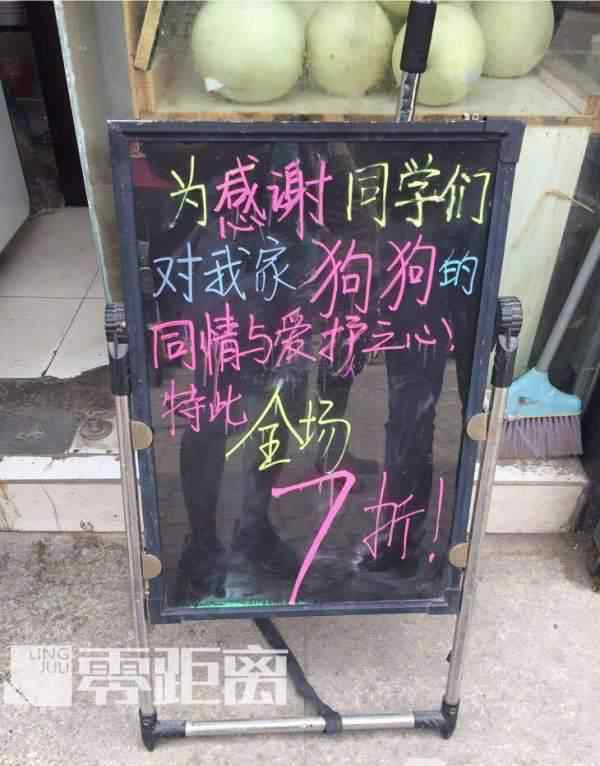 为感谢同学们
对我家狗狗的
同情与爱护之心！
特此
全场
7折！
LING
JULI
零距离